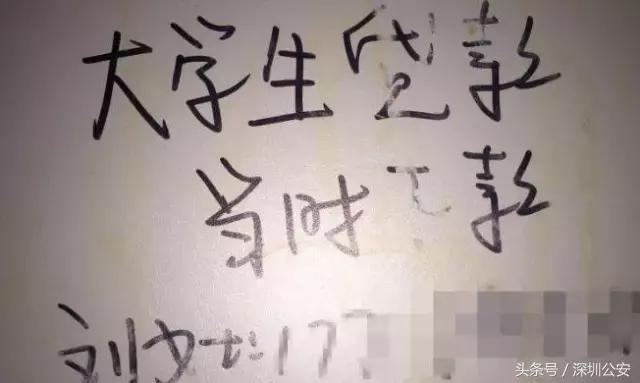 大学生贷款
当时下款
刘女士:17
头条号/深圳公安